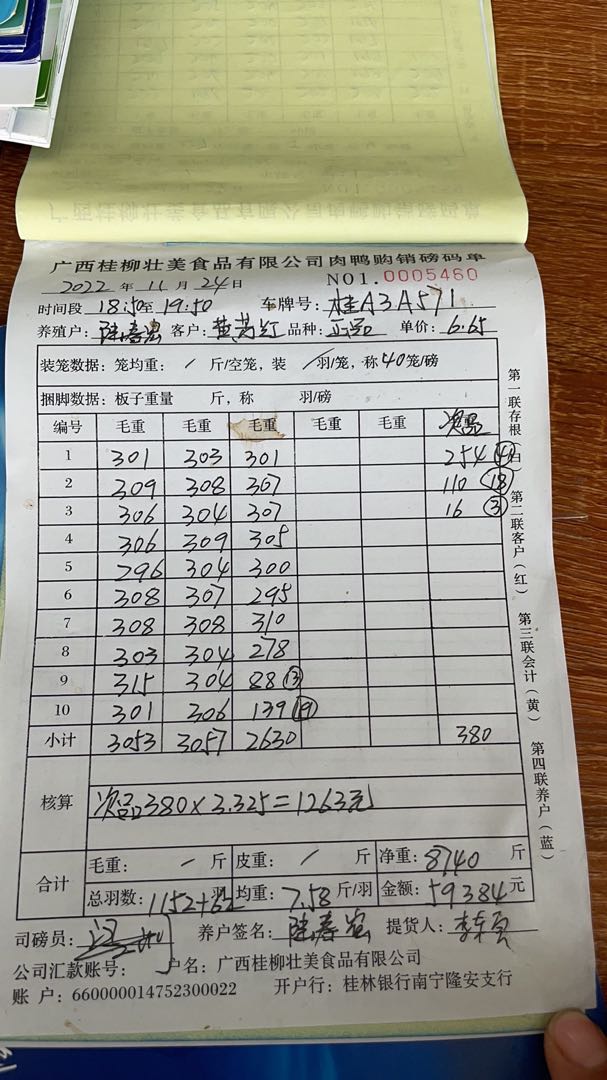 广西桂柳壮美食品有限公司肉鸭购销磅码单
2022 年 11 月 24 日 NO1.0005460
时间段 18:50至19:50 车牌号: 桂A3A571
养殖户: 客户: 品种: 正品 单价: 6.65
装笼数据: 笼均重: / 斤/空笼, 装 / 羽/笼, 称40笼/磅
捆脚数据: 板子重量 斤, 称 羽/磅
编号 毛重 毛重 毛重 毛重 毛重 次品
1 301 303 301 254
2 309 308 307 110 18
3 306 304 307 16 3
4 306 309 305
5 296 304 300
6 308 307 295
7 308 308 310
8 303 304 278
9 315 304 88 13
10 301 306 139 19
小计 3053 3057 2630 380
核算 次品380×3.325=1263元
合计 毛重: / 斤 皮重: / 斤 净重: 8740 斤
总羽数: 1152+62 羽 均重: 7.58 斤/羽 金额: 59384 元
司磅员: 养户签名: 提货人:
公司汇款账号: 户名: 广西桂柳壮美食品有限公司
账 户: 660000014752300022 开户行: 桂林银行南宁隆安支行
第一联存根(白) 第二联客户(红) 第三联会计(黄) 第四联养户(蓝)